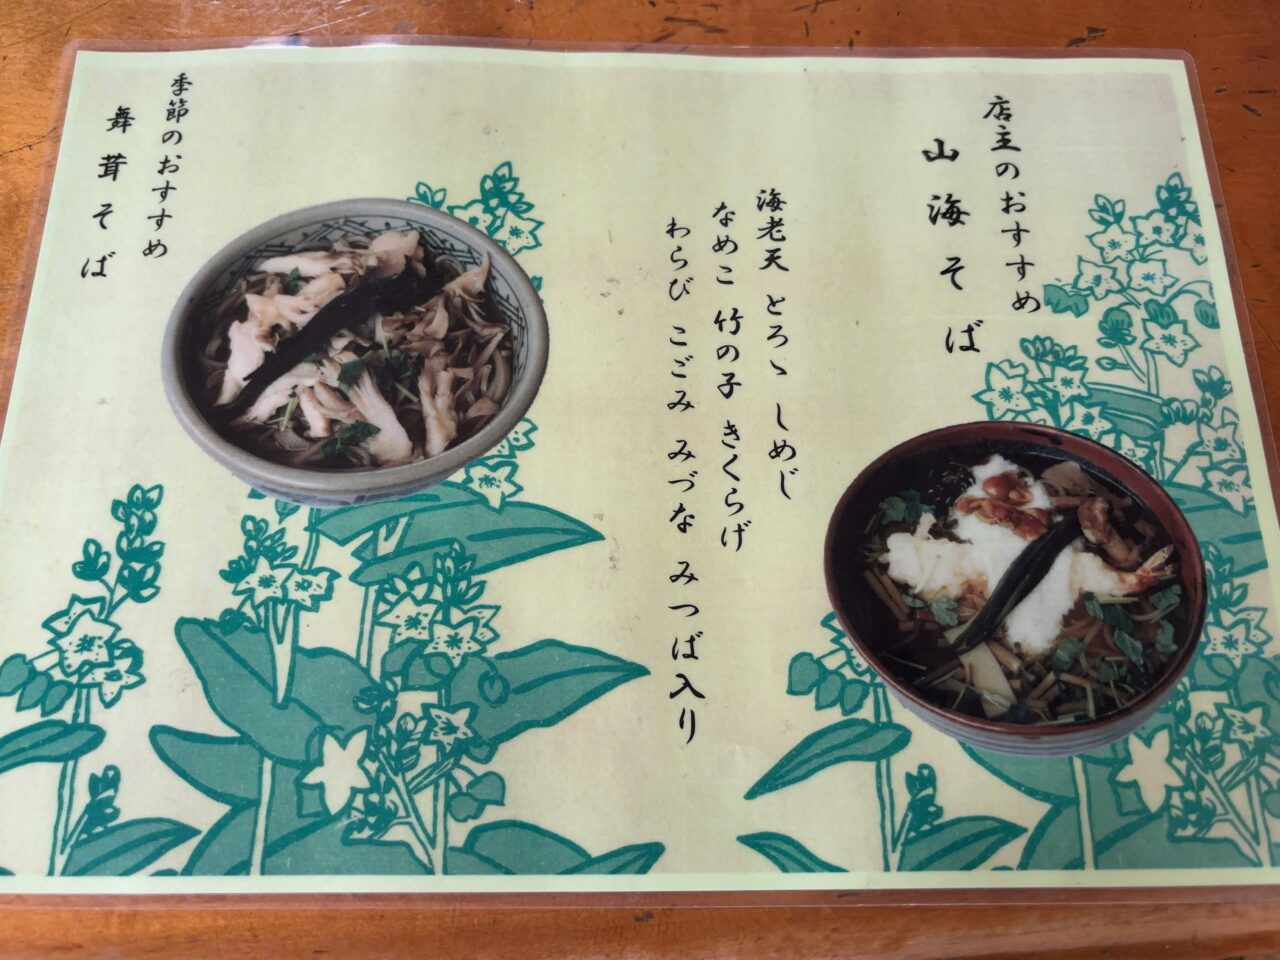 店主のおすすめ
山海そば
海老天 とろゝ しめじ
なめこ 竹の子 きくらげ
わらび こごみ みづな みつば入り
季節のおすすめ
舞茸そば